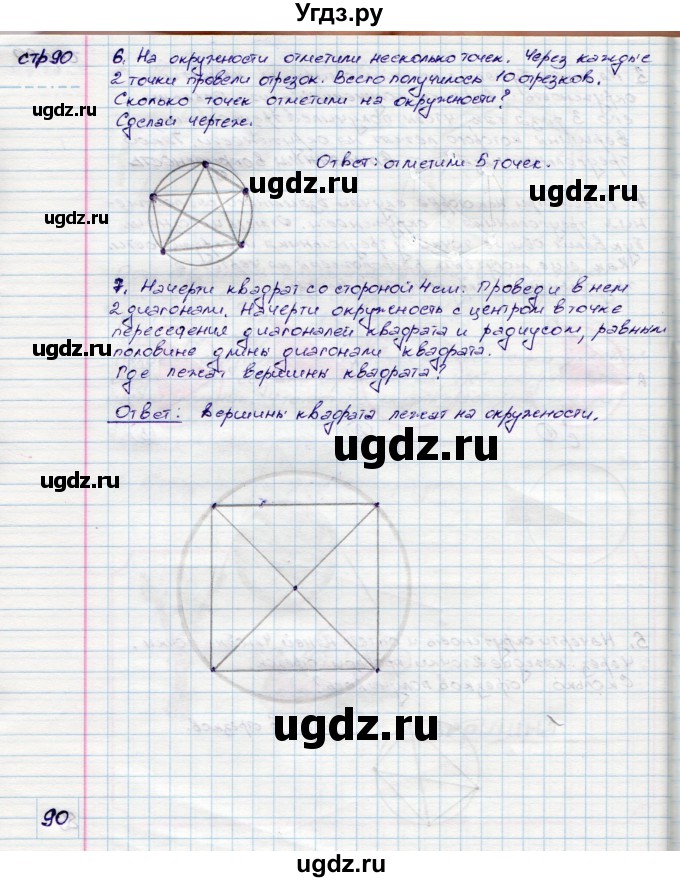 Угдз.ру
стр 90
6. На окружности отметили несколько точек. Через каждые
2 точки провели отрезок. Всего получилось 10 отрезков.
Сколько точек отметили на окружности?
Сделай чертеж.
Ответ: отметили 5 точек.
ugdz.ru
ugdz.ru
ugdz.ru
7. Начерти квадрат со стороной 4 см. Проведи в нем
2 диагонали. Начерти окружность с центром в точке
пересечение диагоналей квадрата и радиусом, равным
половине длины диагонали квадрата.
ugdz.ru
Где лежат вершины квадрата?
Ответ: Вершины квадрата лежат на окружности.
ugdz.ru
ugdz.ru
ugdz.ru
90
ugdz.ru